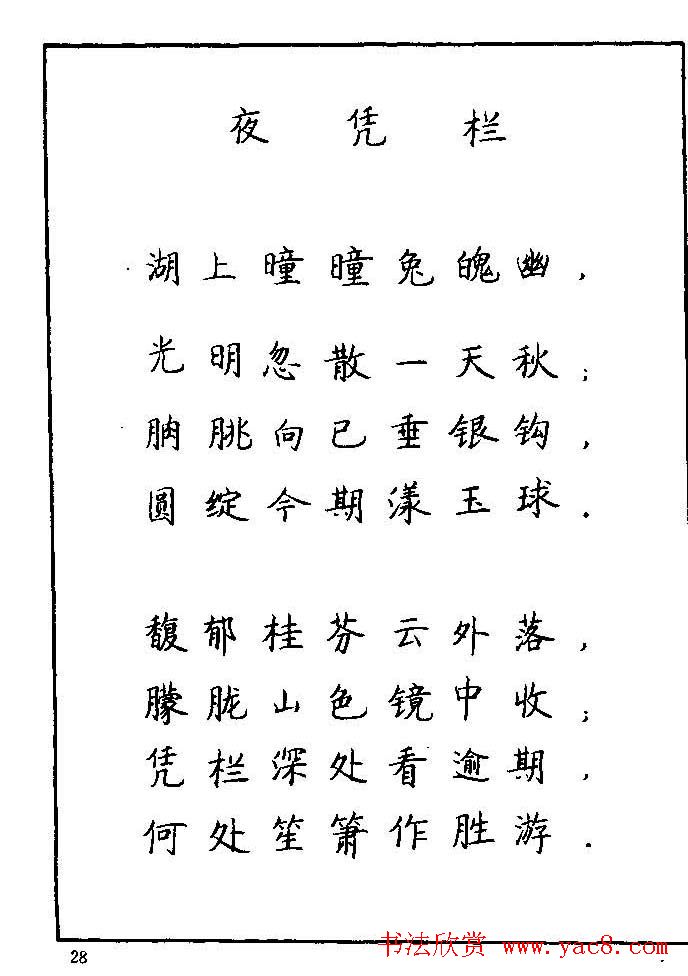 夜凭栏
湖上曈曈兔魄幽，
光明忽散一天秋；
朒朓向已垂银钩，
圆绽今期漾玉球．
馥郁桂芬云外落，
朦胧山色镜中收；
凭栏深处看逾期，
何处笙箫作胜游．
书法欣赏 www.yac8.com
28